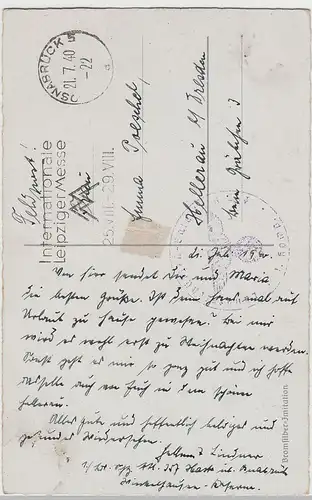 OSNABRÜCK
21.7.40
-22
Internationale
Leipziger Messe
25.VIII.-29.VIII.
Feldpost!
Frau
Hanna Poeschel
Hellerau b/ Dresden
beim Gräbchen 3
d. Juli 1940.
Von hier sendet Dir und Maria
die besten Grüße. Ist denn Hans mal auf
Urlaub zu Hause gewesen? Bei mir
wird es recht erst zu Weihnachten werden.
Sonst geht es mir so ganz gut und ich hoffe
dasselbe auch von Euch in dem schönen
Hellerau.
Alles Gute und hoffentlich baldiges und
gesundes Wiedersehen.
Hellmut Lindner
Winkelhausen-Kaserne.
Bromsilber-Imitation